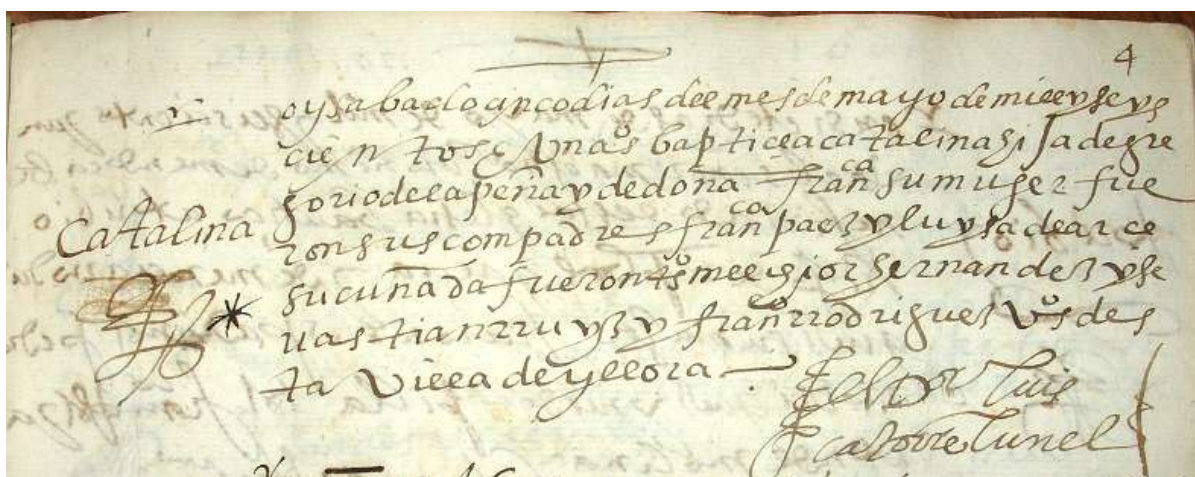 4
oy sabado cinco dias del mes de mayo de mill y seys
cientos y un as baptice a catalina hija de gre
gorio de la peña y de doña franca su muger fue
Catalina
ron sus compadres franco paez y luysa de arce
su cuñada fueron tos melchior hernandez y se
uastian rruyz y franco rrodriguez vos des
ta villa de yllora
El Dor Luis